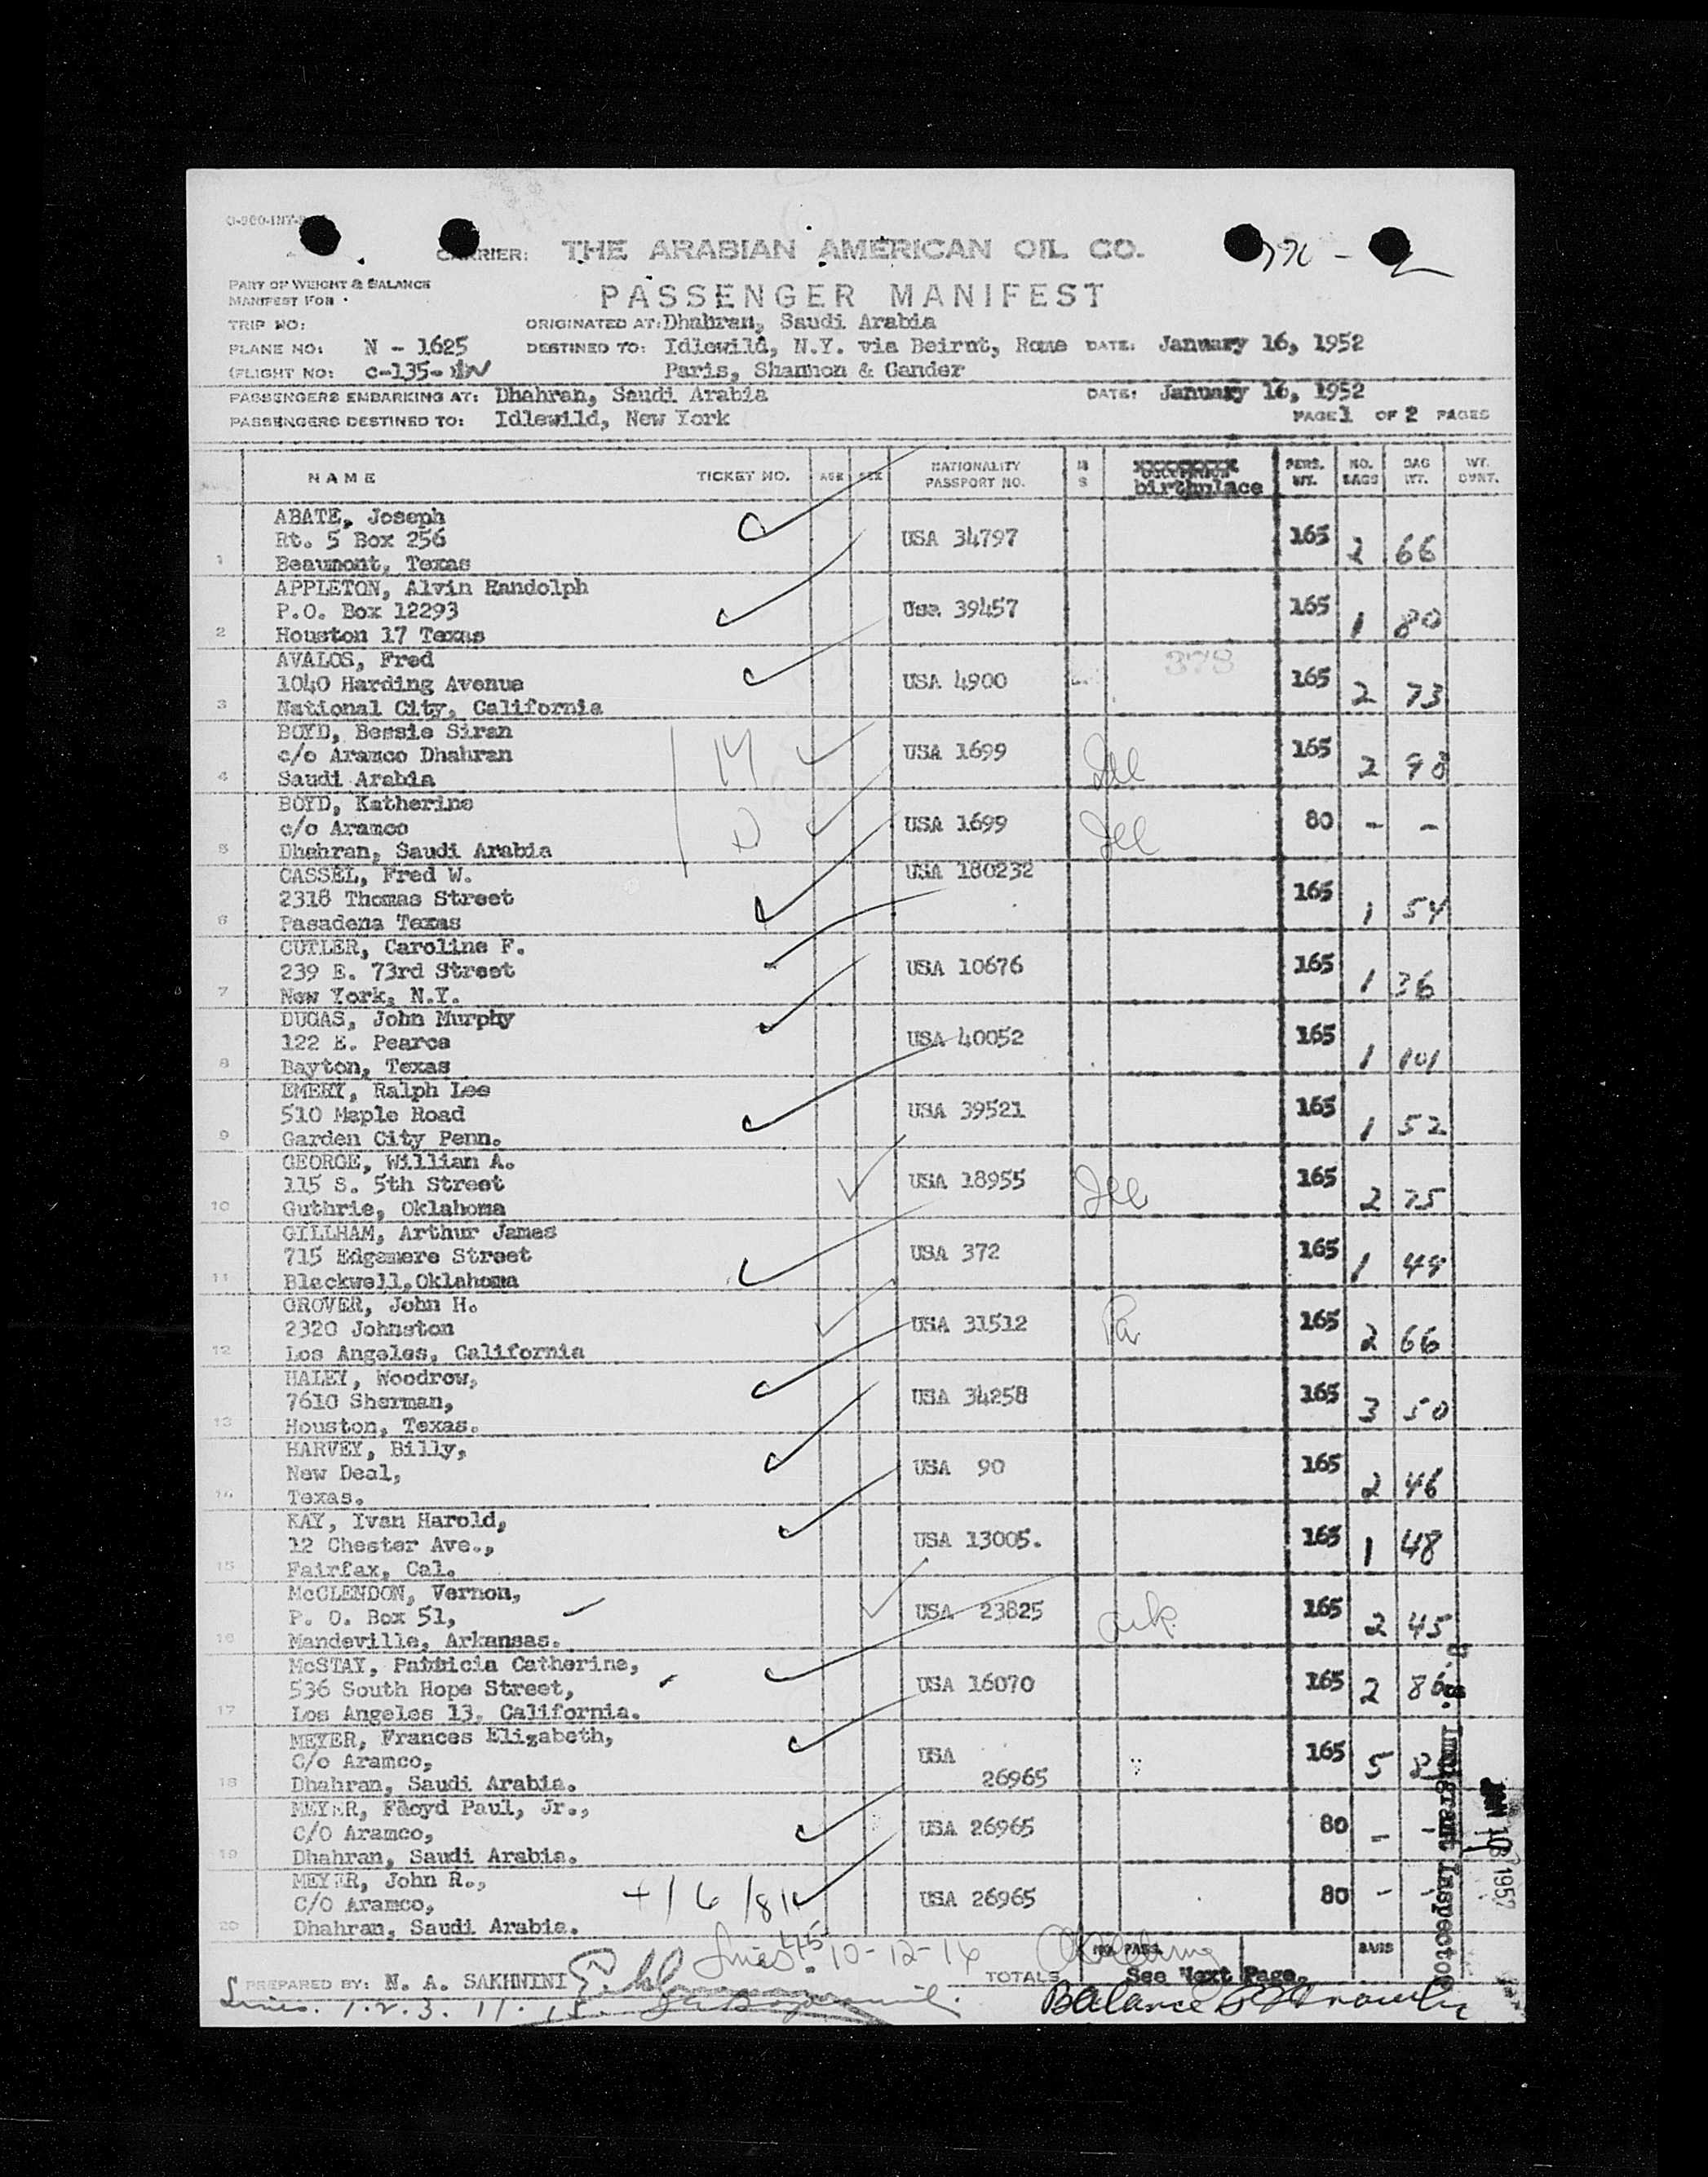 CARRIER: THE ARABIAN AMERICAN OIL CO.
PART OF WEIGHT & BALANCE
MANIFEST FOR
PASSENGER MANIFEST
TRIP NO: ORIGINATED AT: Dhahran, Saudi Arabia
PLANE NO: N - 1625 DESTINED TO: Idlewild, N.Y. via Beirut, Rome DATE: January 16, 1952
(FLIGHT NO: C-135- Paris, Shannon & Gander
PASSENGERS EMBARKING AT: Dhahran, Saudi Arabia DATE: January 16, 1952
PASSENGERS DESTINED TO: Idlewild, New York PAGE 1 OF 2 PAGES
NAME TICKET NO. AGE SEX NATIONALITY PASSPORT NO. birthplace PERS. WT. NO. BAGS BAG WT. WT. OVRT.
ABATE, Joseph
Rt. 5 Box 256 USA 34797 165 2 66
1 Beaumont, Texas
APPLETON, Alvin Randolph
P.O. Box 12293 Usa 39457 165 1 80
2 Houston 17 Texas
AVALOS, Fred 378
1040 Harding Avenue USA 4900 165 2 73
3 National City, California
BOYD, Bessie Siran
c/o Aramco Dhahran USA 1699 Ill 165 2 98
4 Saudi Arabia
BOYD, Katherine
c/o Aramco USA 1699 Ill 80 - -
5 Dhahran, Saudi Arabia
CASSEL, Fred W. USA 180232
2318 Thomas Street 165 1 54
6 Pasadena Texas
CUTLER, Caroline F.
239 E. 73rd Street USA 10676 165 1 36
7 New York, N.Y.
DUGAS, John Murphy
122 E. Pearce USA 40052 165 1 101
8 Bayton, Texas
EMERY, Ralph Lee
510 Maple Road USA 39521 165 1 52
9 Garden City Penn.
GEORGE, William A.
115 S. 5th Street USA 18955 Ill 165 2 75
10 Guthrie, Oklahoma
GILLHAM, Arthur James
715 Edgemere Street USA 372 165 1 49
11 Blackwell, Oklahoma
GROVER, John H.
2320 Johnston USA 31512 Pa 165 2 66
12 Los Angeles, California
HALEY, Woodrow,
7610 Sherman, USA 34258 165 3 50
13 Houston, Texas.
HARVEY, Billy,
New Deal, USA 90 165 2 46
14 Texas.
KAY, Ivan Harold,
12 Chester Ave., USA 13005. 165 1 48
15 Fairfax, Cal.
McCLENDON, Vernon,
P. O. Box 51, USA 23825 Ark. 165 2 45
16 Mandeville, Arkansas.
McSTAY, Patricia Catherine,
536 South Hope Street, USA 16070 165 2 86
17 Los Angeles 13, California.
MEYER, Frances Elizabeth,
C/o Aramco, USA 26965 165 5
18 Dhahran, Saudi Arabia.
MEYER, Floyd Paul, Jr.,
C/O Aramco, USA 26965 80 - -
19 Dhahran, Saudi Arabia.
MEYER, John R.,
C/O Aramco, USA 26965 80 - -
20 Dhahran, Saudi Arabia.
U. S. Immigrant Inspector
JAN 1952
Lines 4.5. 10-12-16
PREPARED BY: N. A. SAKHNINI TOTALS NO. PASS. BAGS
See Next Page.
Lines. 1.2.3. 11. 15. Balance